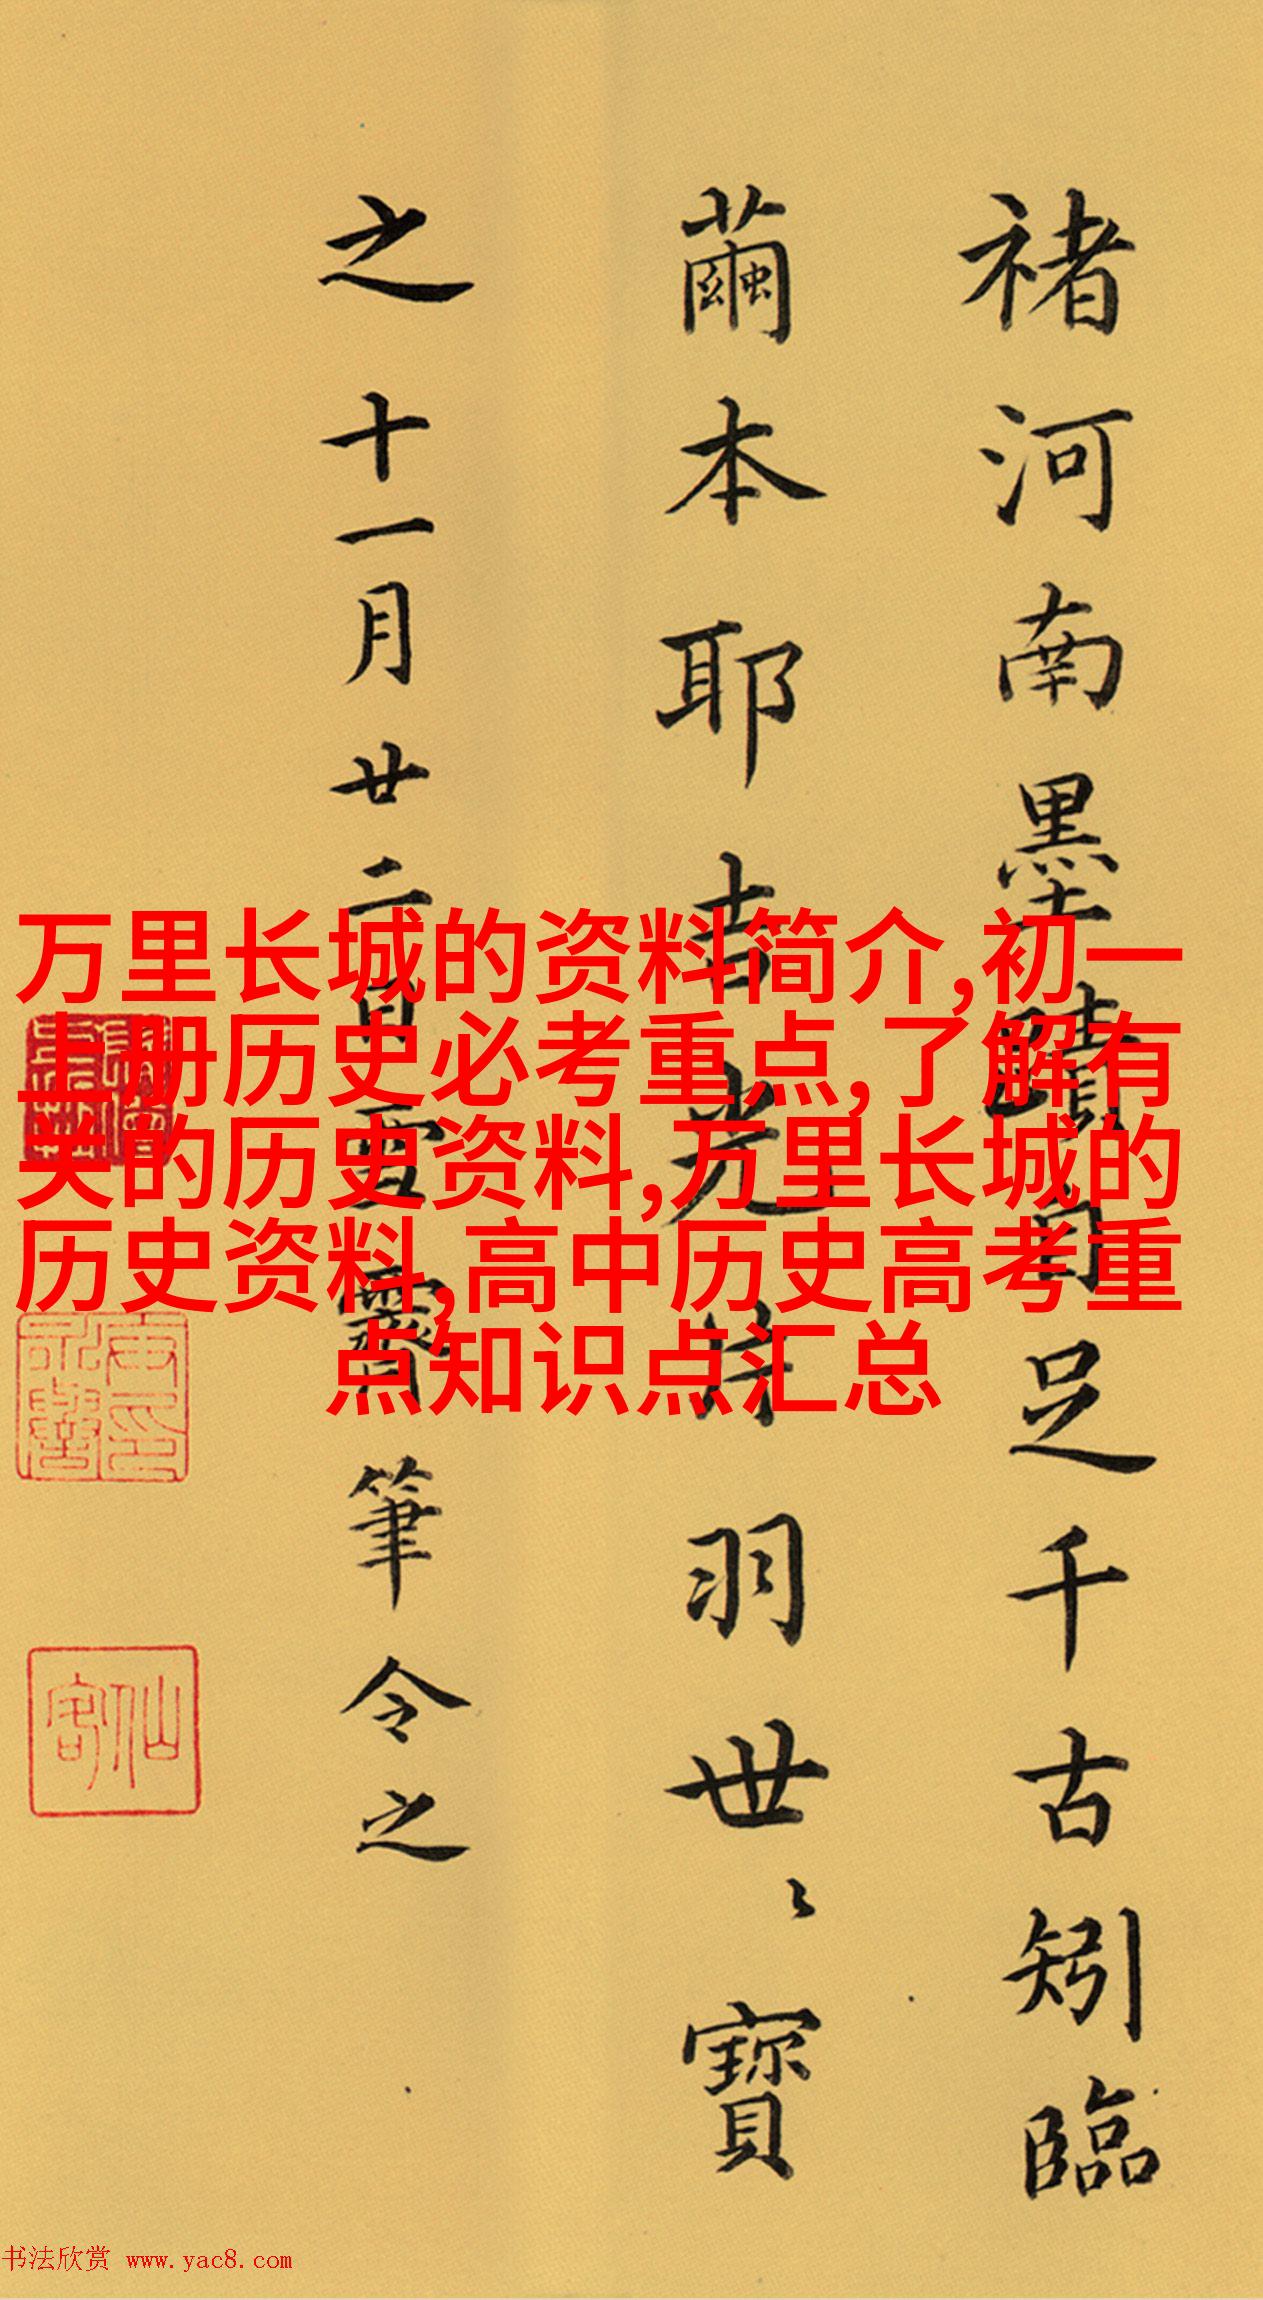 褚河南墨蹟自足千古矧臨
繭本耶吉光片羽世〻寶
之十一月廿二日雪霽筆令之
万里长城的资料简介,初一
上册历史必考重点,了解有
关的历史资料,万里长城的
历史资料,高中历史高考重
点知识点汇总
仙客
书法欣赏 www.yac8.com